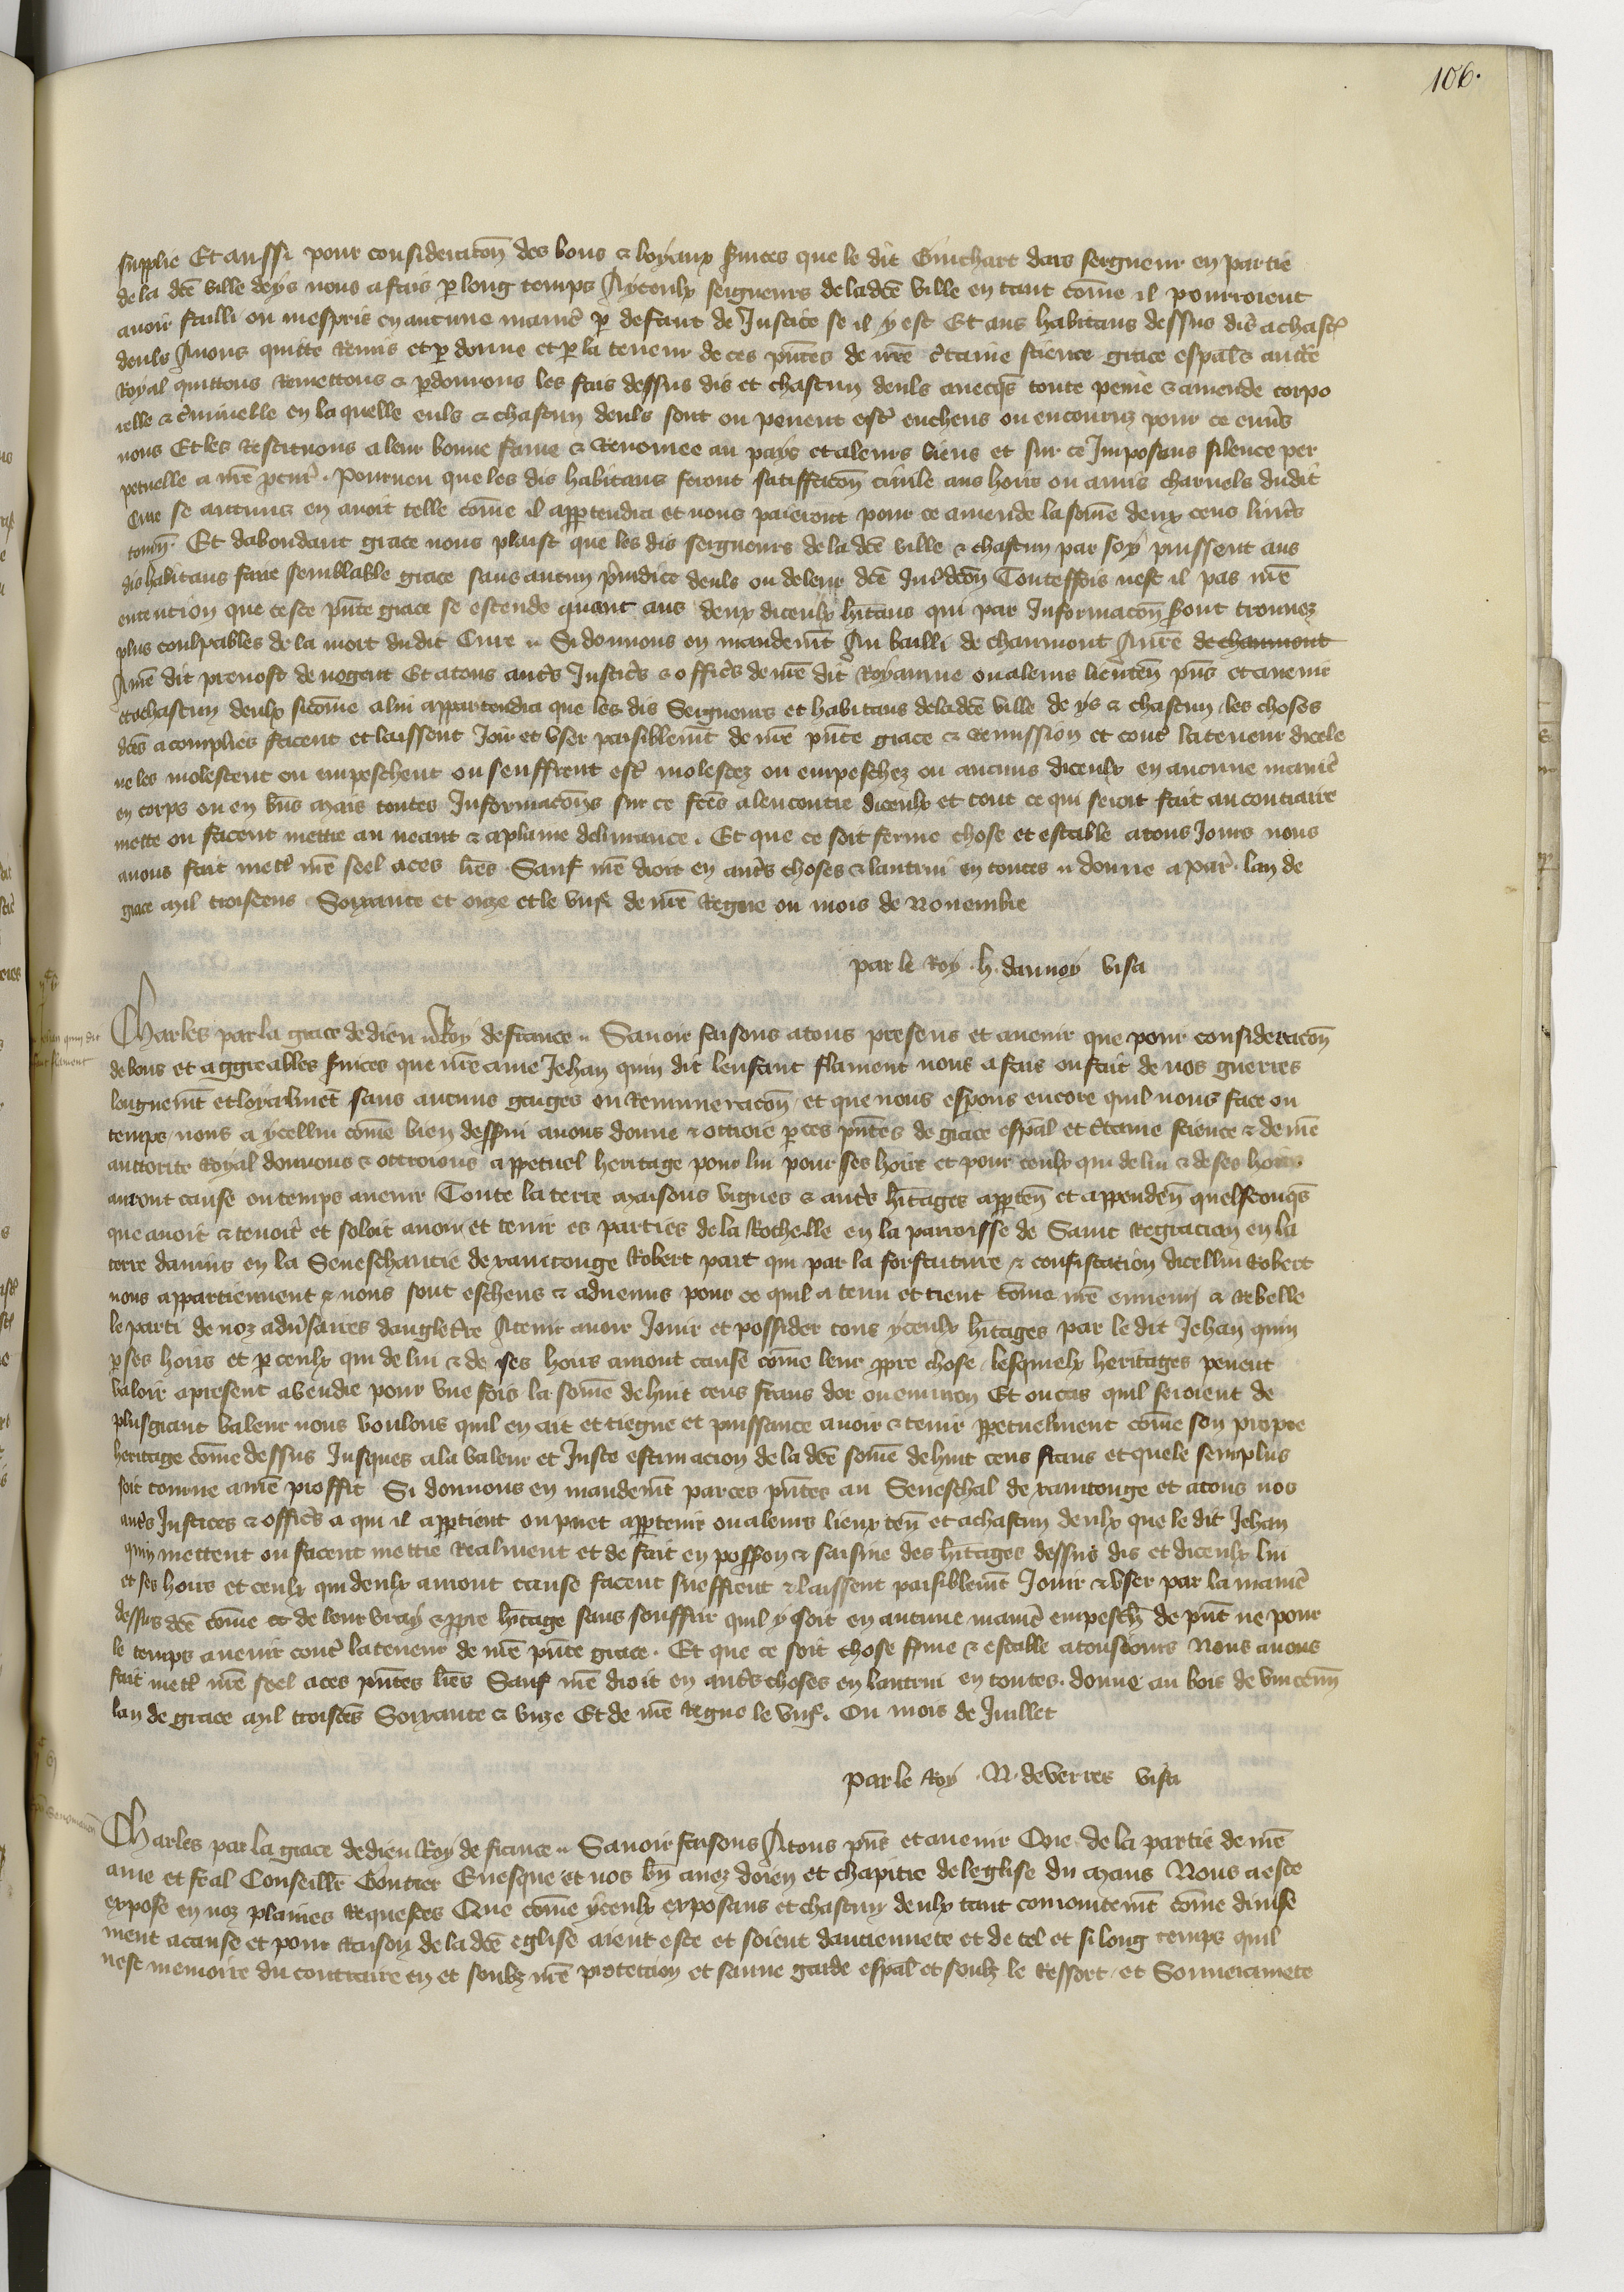 106.
supplie Et aussi pour consideracōn des bons & loyaux s̄uices que le dit Guichart dars seigneur en partie
de la dc̄e ville deys nous a fais p̱ long temps A yceulx seigneurs de la dc̄e ville en tant cōme il pourroient
auoir failli ou mespris en aucune manie᷒ p̱ defaut de Justice se il y est Et aus habitans dessus dis a chasc᷒
deuls Auons quitte remis et p̱donne et p̱ la teneur de ces pn̄tes de nr̄e c̄taine science grace esp̄al & auct̄e
Royal quittons remettons & p̱donnons les fais dessus dis et chascun deuls auecq̄s toute peine & amende corpo
relle & c̄minelle en la quelle euls & chascun deuls sont ou peuent est᷒ encheus ou encouruz pour ce enu᷒s
nous Et les restituons a leur bonne fame & renomee au pays et a leurs biens et sur ce Imposons silence per
petuelle a nr̄e pcur᷒ . Pourueu que les dis habitans feront satiffacōn ciuile aus hoirs ou amis charnels dudit
Cure se aucuns en auoit telle cōme il app̱tendra et nous paieront pour ce amende la som̄e deux cens liur᷒s
tourn̄. Et dabondant grace nous plaist que les dis seigneurs de la dc̄e ville & chascun par soy puissent aus
dis habitans faire semblable grace sans aucun p̄iudice deuls ou de leur dc̄e Jur̄dcōn Touteffois nest il pas nr̄e
entention que ceste pn̄te grace se estende quant aus deux diceulx hītans qui par Informacōn s̄ont trouuez
plus coulpables de la mort du dit Cure .. Si donnons en mandem̄t Au bailli de chaumont A nr̄e de chaumont
A nr̄e dit preuost de nogent Et a tous aut᷒s Justic᷒s & offic᷒s de nr̄e dit Royaume ou a leurs lieuten̄ pn̄s et auenir
et a chascun deulx sicōme a lui appartendra que les dis Seigneurs et habitans de la dc̄e ville de ys & chascun les choses
dc̄es acomplies facent et laissent Joir et vser paisiblem̄t de nr̄e pn̄te grace & remission et cont᷒ la teneur dicele
ne les molestent ou empeschent ou seuffrent est᷒ molestez ou empeschez ou aucuns diceulx en aucune manie᷒
en corps ou en bn̄s mais toutes Informacōns sur ce fc̄es a lencontre diceulx et tout ce qui seroit fait au contraire
mette ou facent mettre au neant & a plaine deliurance . Et que ce soit ferme chose et estable a tous Jours nous
auons fait mett᷒ nr̄e seel a ces lr̄es . Sauf nr̄e droit en aut᷒s choses & lautrui en toutes .. donne a par᷒ . lan de
grace mil troiscens Soixante et onze et le viijᵉ de nr̄e Regne ou mois de Nouembre
par le Roy . H . daunoy visa
Jehan quin dit
lenfant flament
Charles par la grace de dieu .. Roy de france .. Sauoir faisons a tous presens et auenir que pour consideracōn
de bons et aggreables s̄uices que nr̄e ame Jehan quin dit lenfant flament nous a fais ou fait de nos guerres
longuem̄t et loyalm̄et sans aucuns gaiges ou remuneracōn et que nous esp̱ons encore quil nous face ou
temps / nous a ycellui cōme bien dess̄ui auons donne & ottroie p̱ ces pn̄tes de grace esp̄al et c̄taine science & de nr̄e
auctorite Royal donnons & ottroions a p̱petuel heritage pour lui pour ses hoirs et pour ceulx qui de lui & de ses hoirs
auront cause ou temps auenir Toute la terre maisons vignes & aut᷒s hītages app̱ten̄ et appenden̄ quelsconq̄s
que auoit & tenoit et soloit auoir et tenir es parties de la Rochelle en la parroisse de Saint Regracian en la
terre daunis en la Seneschaucie de xanctonge Robert part qui par la forfaiture & confiscation dicellui Robert
nous appartiennent & nous sont escheus & aduenus pour ce quil a tenu et tient cōme nr̄e ennemj & rebelle
le parti de noz adu᷒saires dangleterre A tenir auoir Jouir et possider tous yceulx hītages par le dit Jehan quin
p̱ ses hoirs et p̱ ceulx qui de lui & de ses hoirs auront cause cōme leur p̱pre chose / lesquielx heritages peuent
valoir a present a vendre pour vne fois la som̄e de huit cens frans dor ou enuiron Et ou cas quil seroient de
plus grant valeur nous voulons quil en ait et tiegne et puissance auoir & tenir p̱petuelment cōme son propre
heritage cōme dessus Jusques a la valeur et Juste estimacion de la dc̄e som̄e de huit cens frans et que le seurplus
soit tourne a nr̄e proffit Si donnons en mandem̄t par ces pn̄tes au Seneschal de xanctonge et a tous nos
aut᷒s Justices & offic᷒s a qui il app̱tient ou puet app̱tenir ou a leurs lieux ten̄ et a chascun deulx que le dit Jehan
quin mettent ou facent mettre realment et de fait en possōn & saisine des hītages dessus dis et diceulx lui
et ses hoirs et ceulx qui deulx auront cause facent sueffrent & laissent paisiblem̄t Jouir & vser par la manie᷒
dessus dc̄e cōme & de leur vray & p̱pre hītage sans souffrir quil y soit en aucune manie᷒ empesch̄ de pn̄t ne pour
le temps auenir cont᷒ la teneur de nr̄e pn̄te grace . Et que ce soit chose fme & estable a tousiours Nous auons
fait mett᷒ nr̄e seel a ces pn̄tes lr̄es Sauf nr̄e droit en aut᷒s choses en lautrui en toutes . donne au bois de vincenn̄
lan de grace mil troiscēs Soixante & vnze Et de nr̄e regne le viijᵉ. Ou mois de Juillet
par le Roy . N . de verres visa
Charles par la grace de dieu Roy de france .. Sauoir faisons A tous pn̄s et auenir Que de la partie de nr̄e
ame et feal Conseillr̄ Gontier Euesque et nos bn̄ amez doien et chapitre de leglise du mans Nous a este
expose en noz plaines requestes Que cōme yceulx exposans et chascun deulx tant comunitem̄t cōme diuise
ment a cause et pour raison de la dc̄e eglise aient este et soient danciennete et de tel et si long temps quil
nest memoire du contraire en et soubz nr̄e protection et sauue garde esp̄al et soubz le ressort et Souuerainete